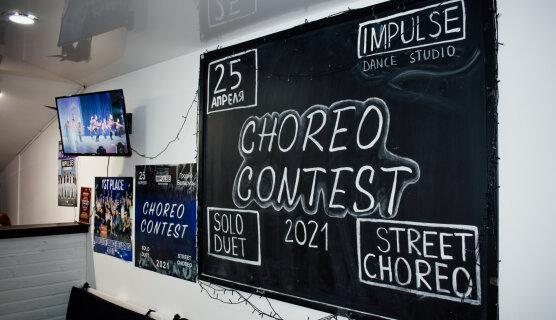 IMPULSE
DANCE STUDIO
25
АПРЕЛЯ
CHOREO
CONTEST
2021
SOLO
DUET
STREET
CHOREO
1ST PLACE
25
IMPULSE
CHOREO
CONTEST
SOLO
DUET
STREET
CHOREO
2021